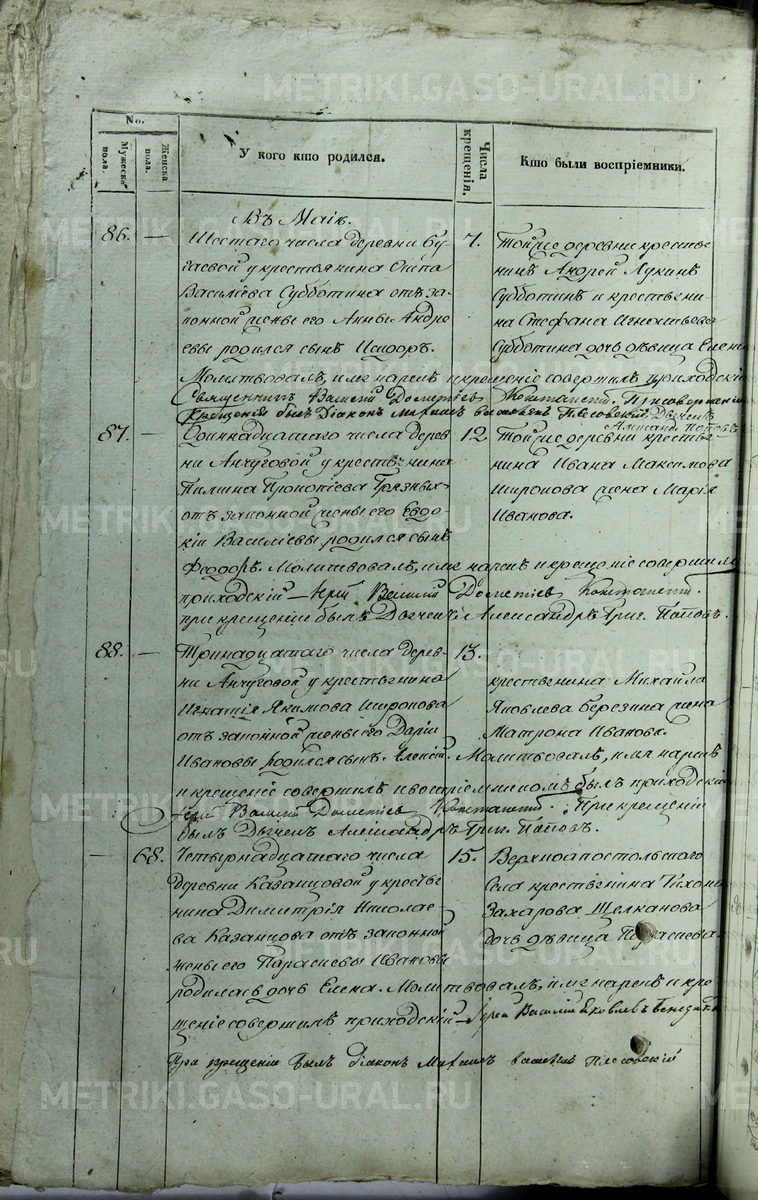 METRIKI.GASO-URAL.RU
No.
Мужеска пола.
Женска пола.
У кого кто родился.
Числа крещенія.
Кто были воспріемники.
Въ Маiѣ.
86. —
Шестаго числа деревни Бу-
гаевой у крестьянина Осипа
Василіева Субботина отъ за-
конной жены его Анны Андре
евы родился сынъ Исидоръ.
7.
Тойже деревни крестья-
нинъ Андрей Лукинъ
Субботинъ и крестьяни-
на Стефана Игнатьева
Субботина дочь дѣвица Елена
Молитвовалъ, имя нарекъ и крещеніе совершилъ приходскій
Священникъ Василій Дометіевъ При совершеніи
Крещенія былъ Діаконъ Михаилъ Плесовскій Дьячекъ
Александръ Поповъ
87. —
Одиннадцатаго числа дерев-
ни Анчуговой у крестьянина
Прокопіева Грязныхъ
отъ законной жены его Евдо-
кіи Василіевы родился сынъ
Феодоръ. Молитвовалъ, имя нарекъ и крещеніе совершилъ
приходскій Іерей Василій Дометіев
при крещеніи былъ Дьячекъ Александръ Григ. Поповъ.
12.
Тойже деревни крестья-
нина Ивана Максимова
Широкова жена Марія
Иванова.
88. —
Тринадцатаго числа дерев-
ни Анчуговой у крестьянина
Игнатія Якимова Широкова
отъ законной жены его Даріи
Ивановы родился сынъ Алексій. Молитвовалъ, имя нарекъ
и крещеніе совершилъ и воспріемникомъ былъ приходскій
Іерей Василій Дометіев При крещеніи
былъ Дьячекъ Александръ Григ. Поповъ.
13.
крестьянина Михайла
Яковлева Березина жена
Матрона Иванова.
— 68.
Четырнадцатаго числа
деревни Казанцовой у крестья-
нина Димитрія Николае-
ва Казанцова отъ законной
жены его Параскевы Ивановы
родилась дочь Елена. Молитвовалъ, имя нарекъ и кре-
щеніе совершилъ приходскій Іерей Василій Яковлевъ
При крещеніи былъ діаконъ Михаилъ Плесовскій
15.
Верхноапостольскаго
Села крестьянина Тихона
Захарова Щелканова
дочь дѣвица Параскева.